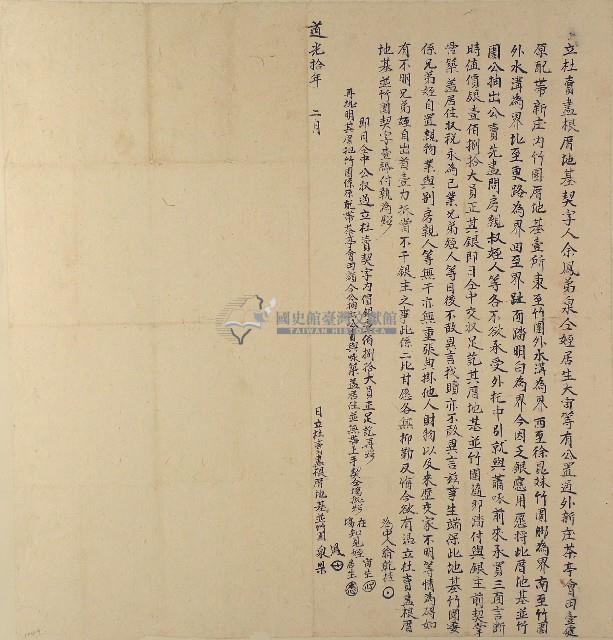 立杜賣盡根厝地基契字人余鳳弟泉仝姪居生大宙等有公置過外新庄茶亭會田壹處
原配帶新庄內竹圍厝地基壹所東至竹圍外水溝為界西至徐昆妹竹圍脚為界南至竹圍
外水溝為界北至更路為界四至界趾面踏明白為界今因乏銀應用愿將此厝地基並竹
圍公抽出公賣先盡問房親叔姪人等各不欲承受外托中引就與蕭 前來承買三面言斷
時值價銀壹佰捌拾大員正其銀即日仝中交收足訖其厝地基並竹圍隨即踏付與銀主前契掌
管築蓋居住收稅永為己業兄弟姪人等日後不敢異言找贖亦不敢異言滋事生端保此地基竹圍委
係兄弟姪自置親物業與別房親人等無干亦無重張典掛他人財物以及來歷交家不明等情為碍如
有不明兄弟姪自出首壹力抵當不干銀主之事此係二比甘愿各無抑勒反悔今欲有憑立杜賣盡根厝
地基並竹圍契字壹紙付執為照
即日仝中公收過立杜賣契字內價銀壹佰捌拾大員正足訖再照
再批明其厝地竹圍係原配帶茶亭會田 今公抽出公賣與 築蓋居住並無帶上手契合塲批照
為中人翁乾位
在塲知見姪 宙生
居生
道光拾年 二月 日立杜賣盡根厝地基並竹圍 泉 弟
國史館臺灣文獻館
TAIWAN HISTORICA